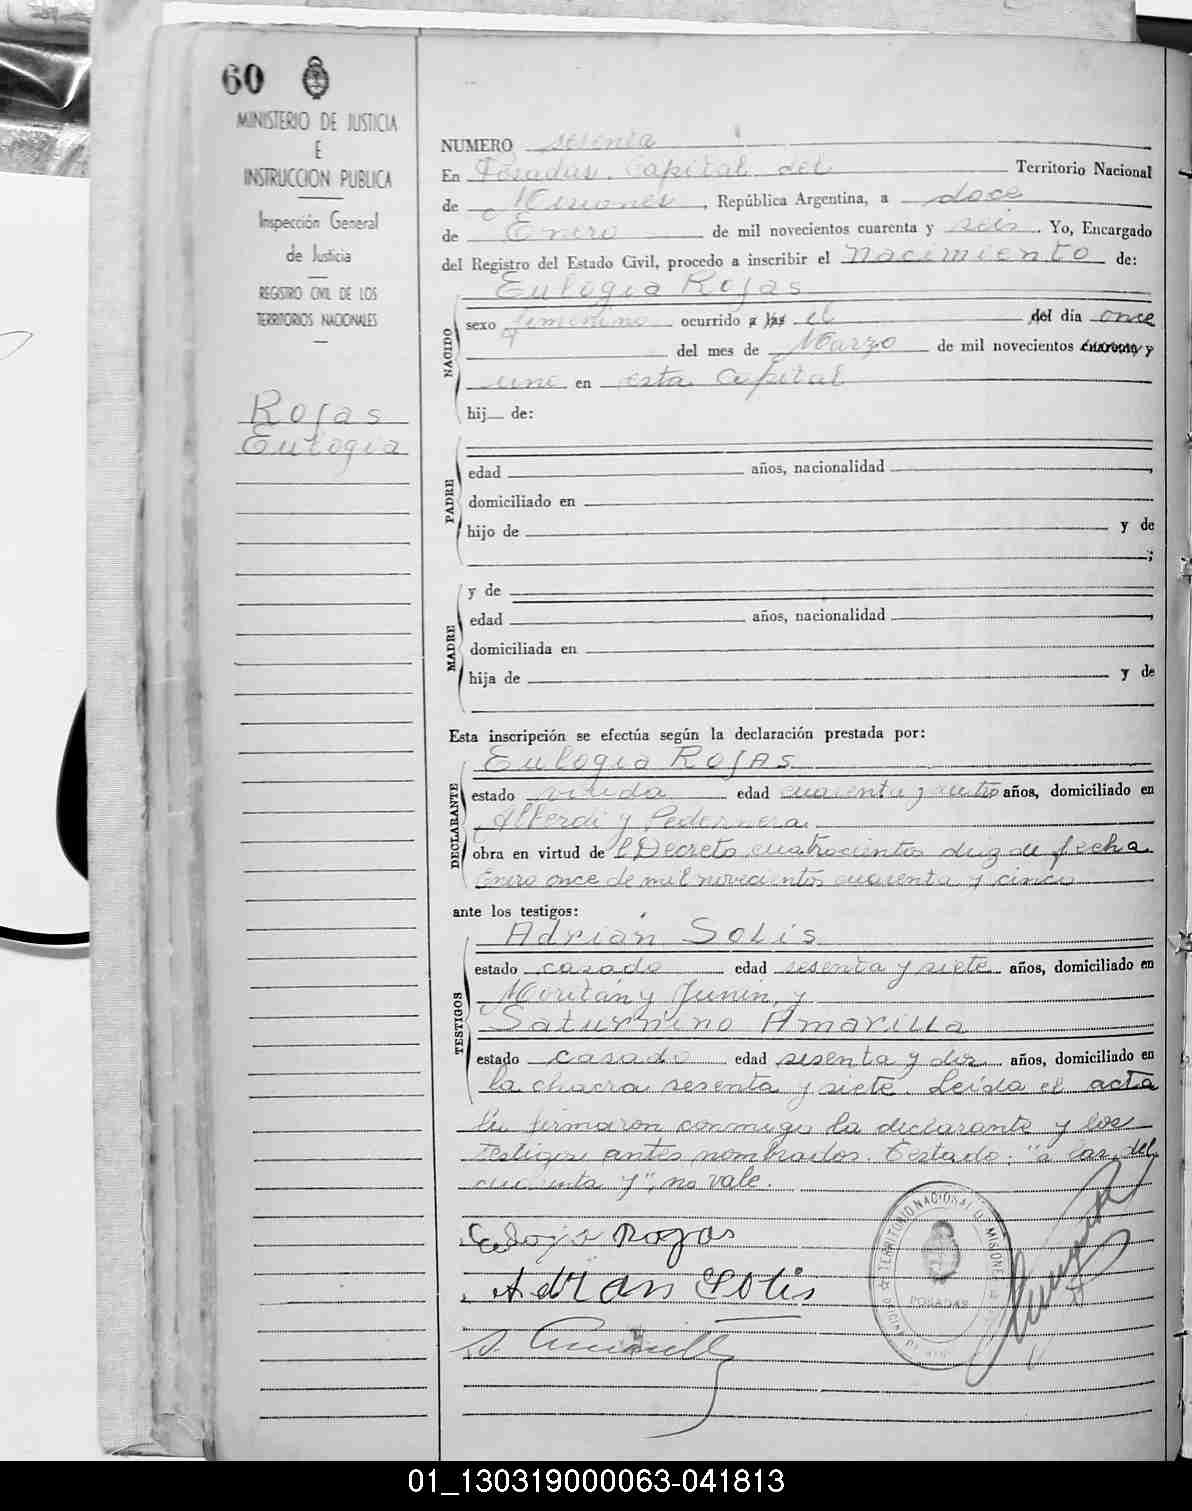 60
MINISTERIO DE JUSTICIA
E
INSTRUCCION PUBLICA
Inspección General
de Justicia
REGISTRO CIVIL DE LOS
TERRITORIOS NACIONALES
Rojas
Eulogia
NUMERO sesenta
En Posadas. Capital del Territorio Nacional
de Misiones, República Argentina, a doce
de Enero de mil novecientos cuarenta y seis. Yo, Encargado
del Registro del Estado Civil, procedo a inscribir el nacimiento de:
NACIDO
Eulogia Rojas
sexo femenino ocurrido a las el del día once
del mes de Marzo de mil novecientos cuarenta y
uno en esta Capital
hij de:
PADRE
edad años, nacionalidad ,
domiciliado en
hijo de y de
;
MADRE
y de
edad años, nacionalidad ,
domiciliada en
hija de y de
Esta inscripción se efectúa según la declaración prestada por:
DECLARANTE
Eulogia Rojas
estado viuda edad cuarenta y cuatro años, domiciliado en
Alberdi y Pedernera
obra en virtud de l Decreto cuatrocientos diez de fecha
Enero once de mil novecientos cuarenta y cinco
ante los testigos:
TESTIGOS
Adrián Solis
estado casado edad sesenta y siete años, domiciliado en
Moritán y Junin, y
Saturnino Amarilla
estado casado edad sesenta y dos años, domiciliado en
la chacra sesenta y siete. Leída el acta
la firmaron conmigo la declarante y los
testigos antes nombrados. Testado: "a las, del
cuarenta y", no vale.
Eulogia Rojas
Adrian Solis
S. Amarilla
TERRITORIO NACIONAL D MISIONES
POSADAS
01_130319000063-041813